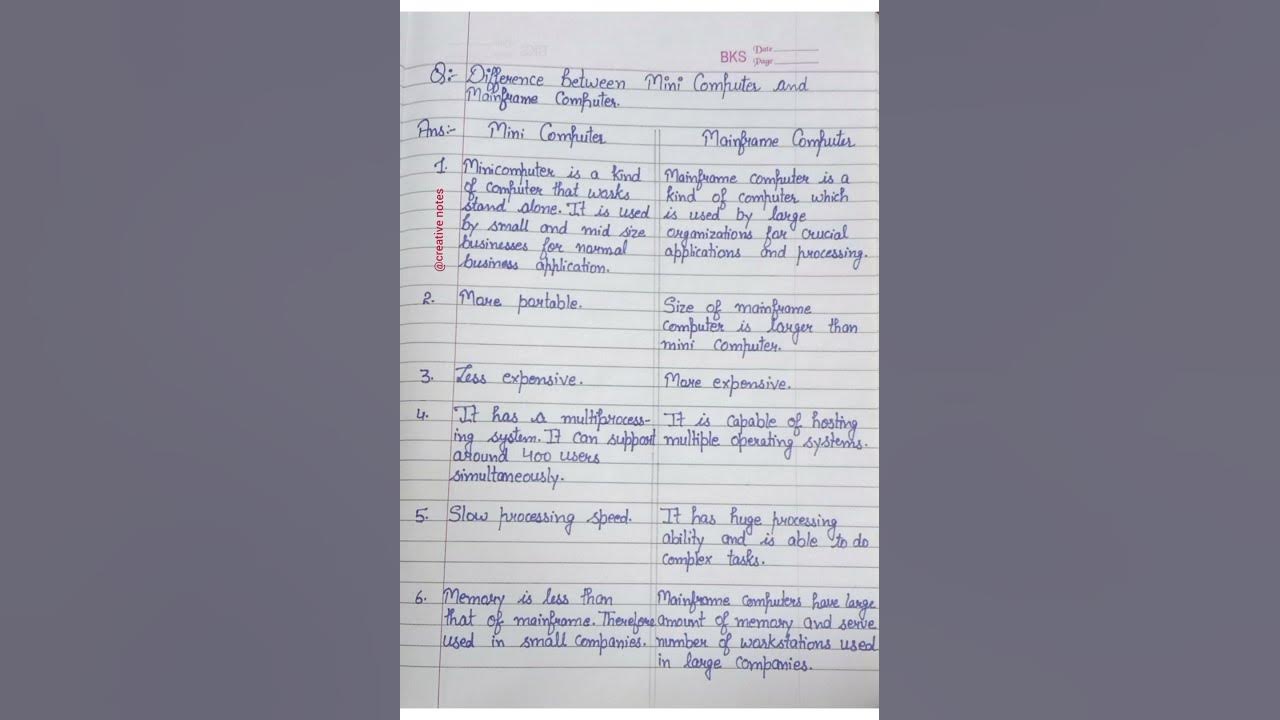 BKS Date
Page
Q:- Difference between Mini Computer and
Mainframe Computer.
Ans:- Mini Computer
Mainframe Computer
1. Minicomputer is a kind
of computer that works
stand alone. It is used
by small and mid size
businesses for normal
business application.
Mainframe computer is a
kind of computer which
is used by large
organizations for crucial
applications and processing.
@creative notes
2. More portable.
Size of mainframe
computer is larger than
mini computer.
3. Less expensive.
More expensive.
4. It has a multiprocess-
ing system. It can support
around 400 users
simultaneously.
It is capable of hosting
multiple operating systems.
5. Slow processing speed.
It has huge processing
ability and is able to do
complex tasks.
6. Memory is less than
that of mainframe. Therefore
used in small companies.
Mainframe computers have large
amount of memory and serve
number of workstations used
in large companies.